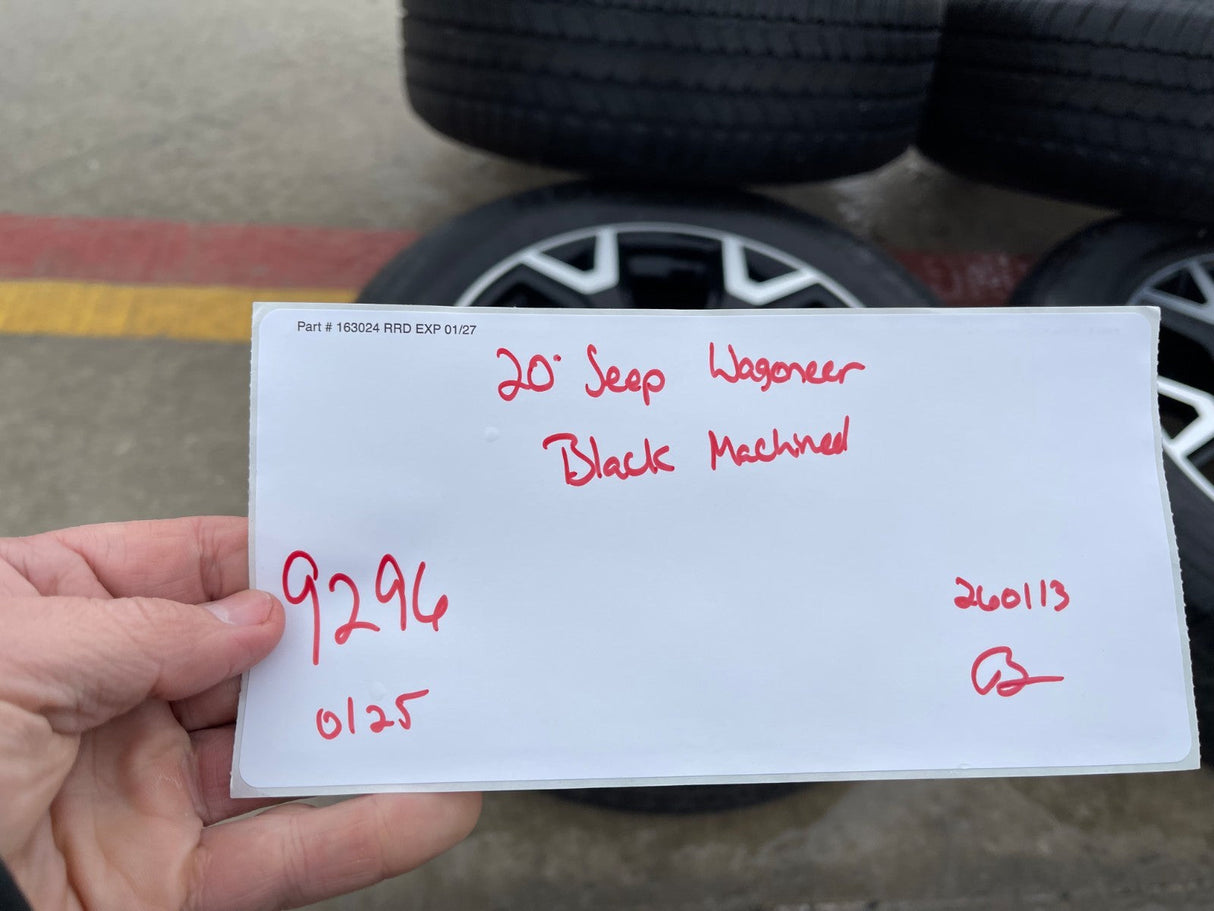 Part # 163024 RRD EXP 01/27
20" Jeep Wagoneer
Black Machined
9296
260113
0125